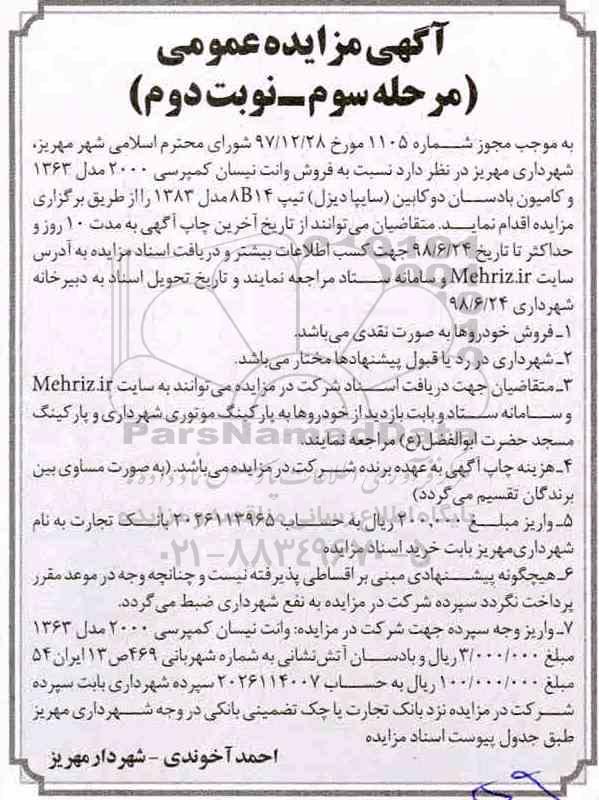 آگهی مزایده عمومی
(مرحله سوم ـ نوبت دوم)
به موجب مجوز شماره ۱۱۰۵ مورخ ۹۷/۱۲/۲۸ شورای محترم اسلامی شهر مهریز،
شهرداری مهریز در نظر دارد نسبت به فروش وانت نیسان کمپرسی ۲۰۰۰ مدل ۱۳۶۳
و کامیون بادسان دوکابین (سایپا دیزل) تیپ ۸B۱۴ مدل ۱۳۸۳ را از طریق برگزاری
مزایده اقدام نماید. متقاضیان می‌توانند از تاریخ آخرین چاپ آگهی به مدت ۱۰ روز و
حداکثر تا تاریخ ۹۸/۶/۲۴ جهت کسب اطلاعات بیشتر و دریافت اسناد مزایده به آدرس
سایت Mehriz.ir و سامانه ستاد مراجعه نمایند و تاریخ تحویل اسناد به دبیرخانه
شهرداری ۹۸/۶/۲۴
۱ـ فروش خودروها به صورت نقدی می‌باشد.
۲ـ شهرداری در رد یا قبول پیشنهادها مختار می‌باشد.
۳ـ متقاضیان جهت دریافت اسناد شرکت در مزایده می‌توانند به سایت Mehriz.ir
و سامانه ستاد و بابت بازدید از خودروها به پارکینگ موتوری شهرداری و پارکینگ
مسجد حضرت ابوالفضل(ع) مراجعه نمایند.
ParsNamadData
۴ـ هزینه چاپ آگهی به عهده برنده شرکت در مزایده می‌باشد. (به صورت مساوی بین
برندگان تقسیم می‌گردد)
پایگاه اطلاع رسانی مناقصه و مزایده
۵ـ واریز مبلغ ۲۰۰,۰۰۰ ریال به حساب ۲۰۲۶۱۱۳۹۶۵ بانک تجارت به نام
شهرداری‌مهریز بابت خرید اسناد مزایده
۰۲۱-۸۸۳۴۹۶۷۰-۵
۶ـ هیچگونه پیشنهادی مبنی بر اقساطی پذیرفته نیست و چنانچه وجه در موعد مقرر
پرداخت نگردد سپرده شرکت در مزایده به نفع شهرداری ضبط می‌گردد.
۷ـ واریز وجه سپرده جهت شرکت در مزایده: وانت نیسان کمپرسی ۲۰۰۰ مدل ۱۳۶۳
مبلغ ۳/۰۰۰/۰۰۰ ریال و بادسان آتش‌نشانی به شماره شهربانی ۴۶۹ص۱۳ ایران ۵۴
مبلغ ۱۰۰/۰۰۰/۰۰۰ ریال به حساب ۲۰۲۶۱۱۴۰۰۷ سپرده شهرداری بابت سپرده
شرکت در مزایده نزد بانک تجارت یا چک تضمینی بانکی در وجه شهرداری مهریز
طبق جدول پیوست اسناد مزایده
احمد آخوندی - شهردار مهریز